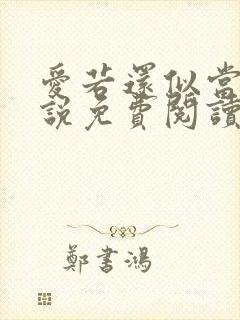 愛若還似當
說免費閱讀
鄭書鴻